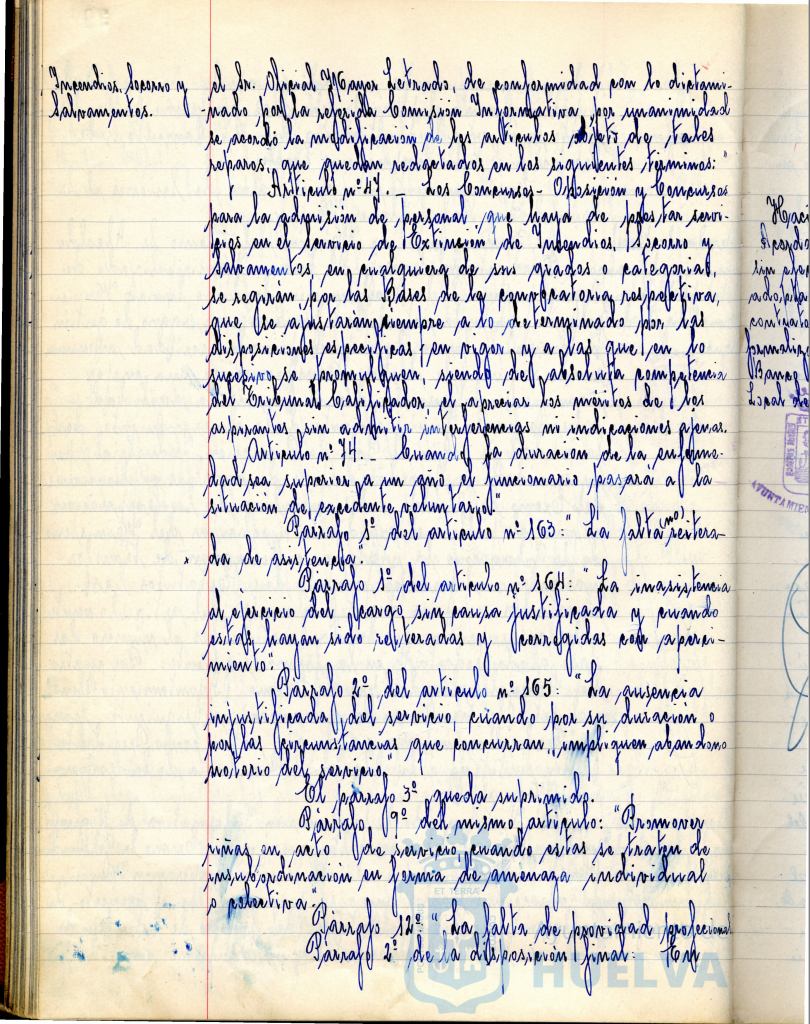 Incendios, Socorro y
Salvamentos.
el Sr. Oficial Mayor Letrado, de conformidad con lo dictami-
nado por la referida Comisión Informativa, por unanimidad
se acordó la modificación de los articulos objeto de tales
reparos, que quedan redactados en los siguientes terminos:"
Articulo nº 47. - Los Concursos-Oposición y Concursos
para la admisión de personal que haya de prestar servi-
cios en el Servicio de Extinción de Incendios, Socorro y
Salvamentos, en cualquiera de sus grados o categorias,
se regirán por las Bases de la convocatoria respectiva,
que se ajustarán siempre a lo determinado por las
disposiciones especificas en vigor y a las que en lo
sucesivo se promulguen, siendo de absoluta competencia
del Tribunal Calificador, el apreciar los méritos de los
aspirantes sin admitir interferencias ni indicaciones ajenas.
Articulo nº 74. - Cuando la duración de la enferme-
dad sea superior a un año, el funcionario pasará a la
situación de excedente voluntario".
Párrafo 1º del articulo nº 163: "La falta (no) reitera-
da de asistencia".
Párrafo 1º del articulo nº 164: "La inasistencia
al ejercicio del cargo sin causa justificada y cuando
estas hayan sido reiteradas y corregidas con aperci-
miento".
Párrafo 2º del articulo nº 165: "La ausencia
injustificada del servicio, cuando por su duración o
por las circunstancias que concurran, impliquen abandono
notorio del servicio"
El párrafo 3º queda suprimido.
Párrafo 9º del mismo articulo: "Promover
riñas en acto de servicio cuando estas se traten de
insubordinación en forma de amenaza individual
o colectiva".
Párrafo 12º: "La falta de providad profesional
Párrafo 2º de la disposición final: En
Acordo
sin
adopta
contrato
formaliz
Banco
Local de
AYUNTAMIEN
ET TERRÆ
HUELVA